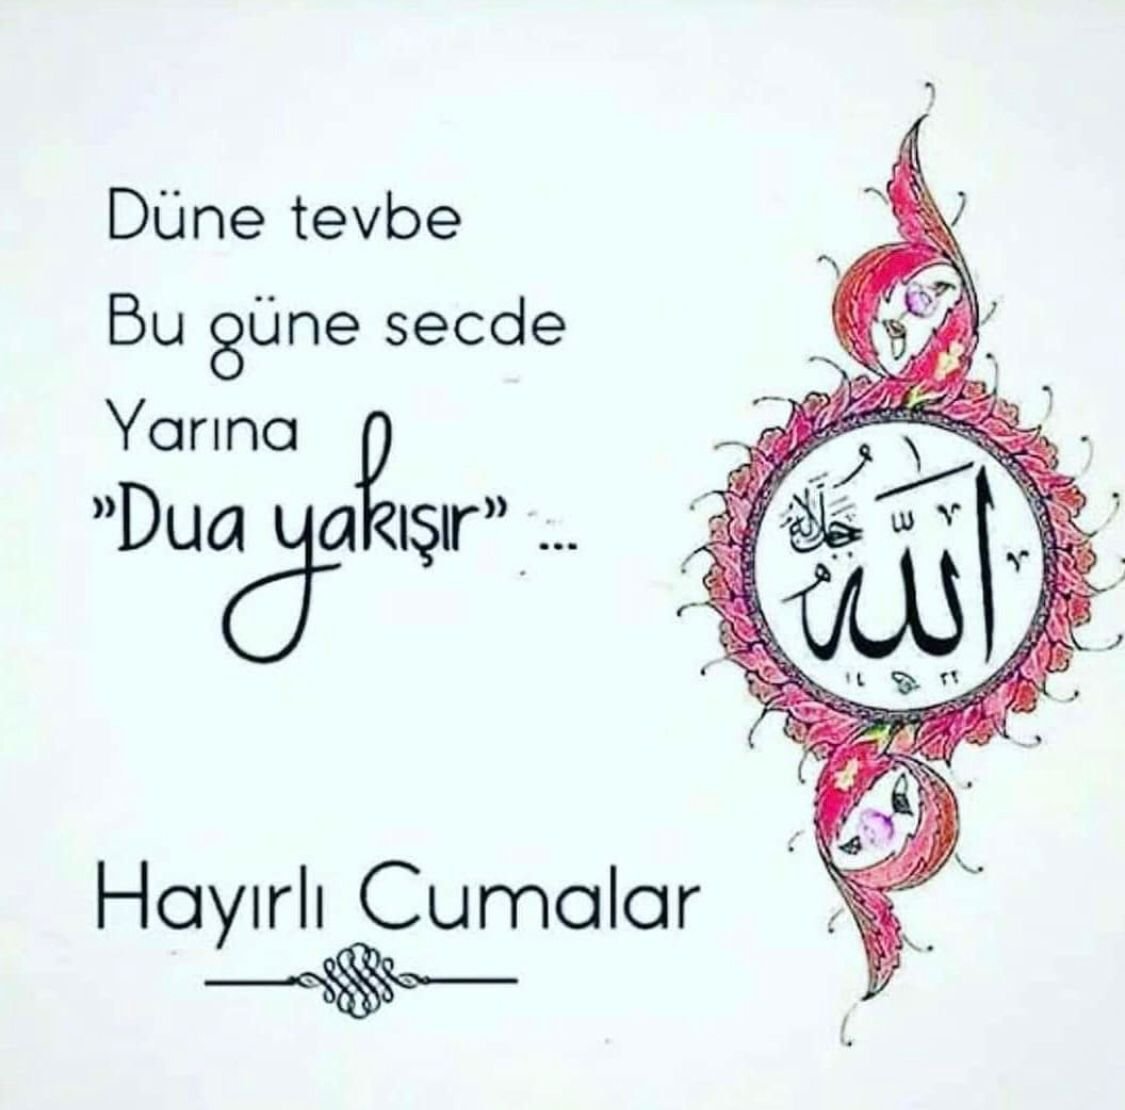 Düne tevbe
Bu güne secde
Yarına
”Dua yakışır” ...
الله
جل جلاله
Hayırlı Cumalar